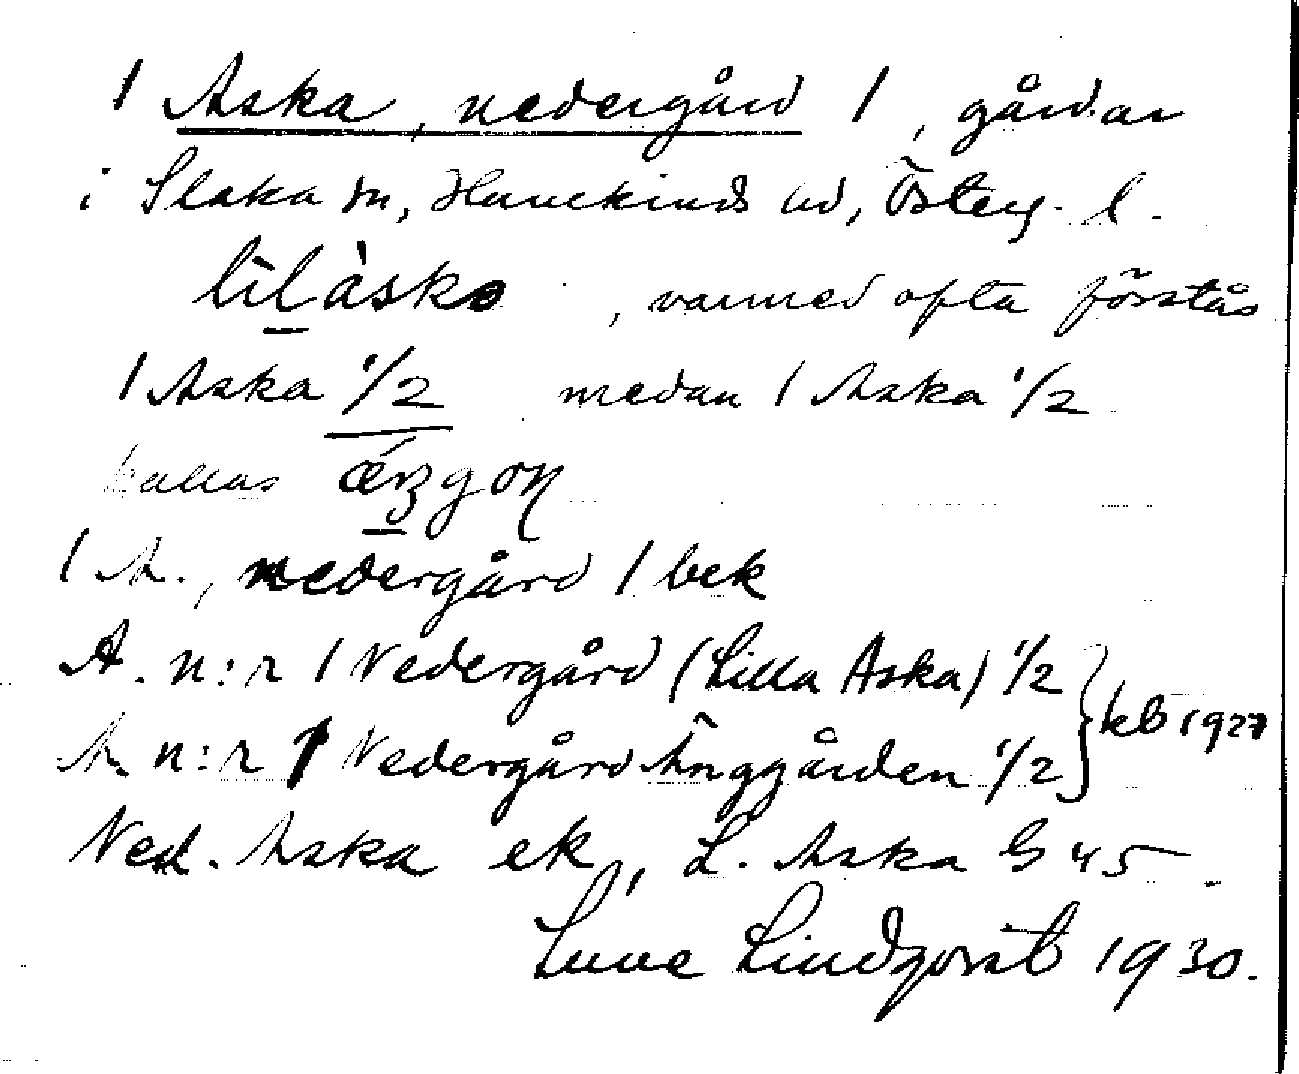 1 Aska, nedergård 1, gårdar
i Slaka sn, Hanekinds hd, Österg. l.
lilàsko, varmed ofta förstås
1 Aska 1/2 medan 1 Aska 1/2
kallas
1 A., nedergård 1 bek
A. n:r 1 Nedergård (Lilla Aska) 1/2
A. n:r 1 Nedergård Änggården 1/2 } kb 1927
Ned. Aska ek, L. Aska G 45.
Sune Lindqvist 1930.